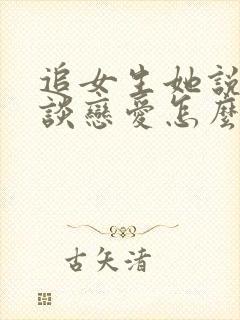 追女生她說
談戀愛怎麼
古矢清